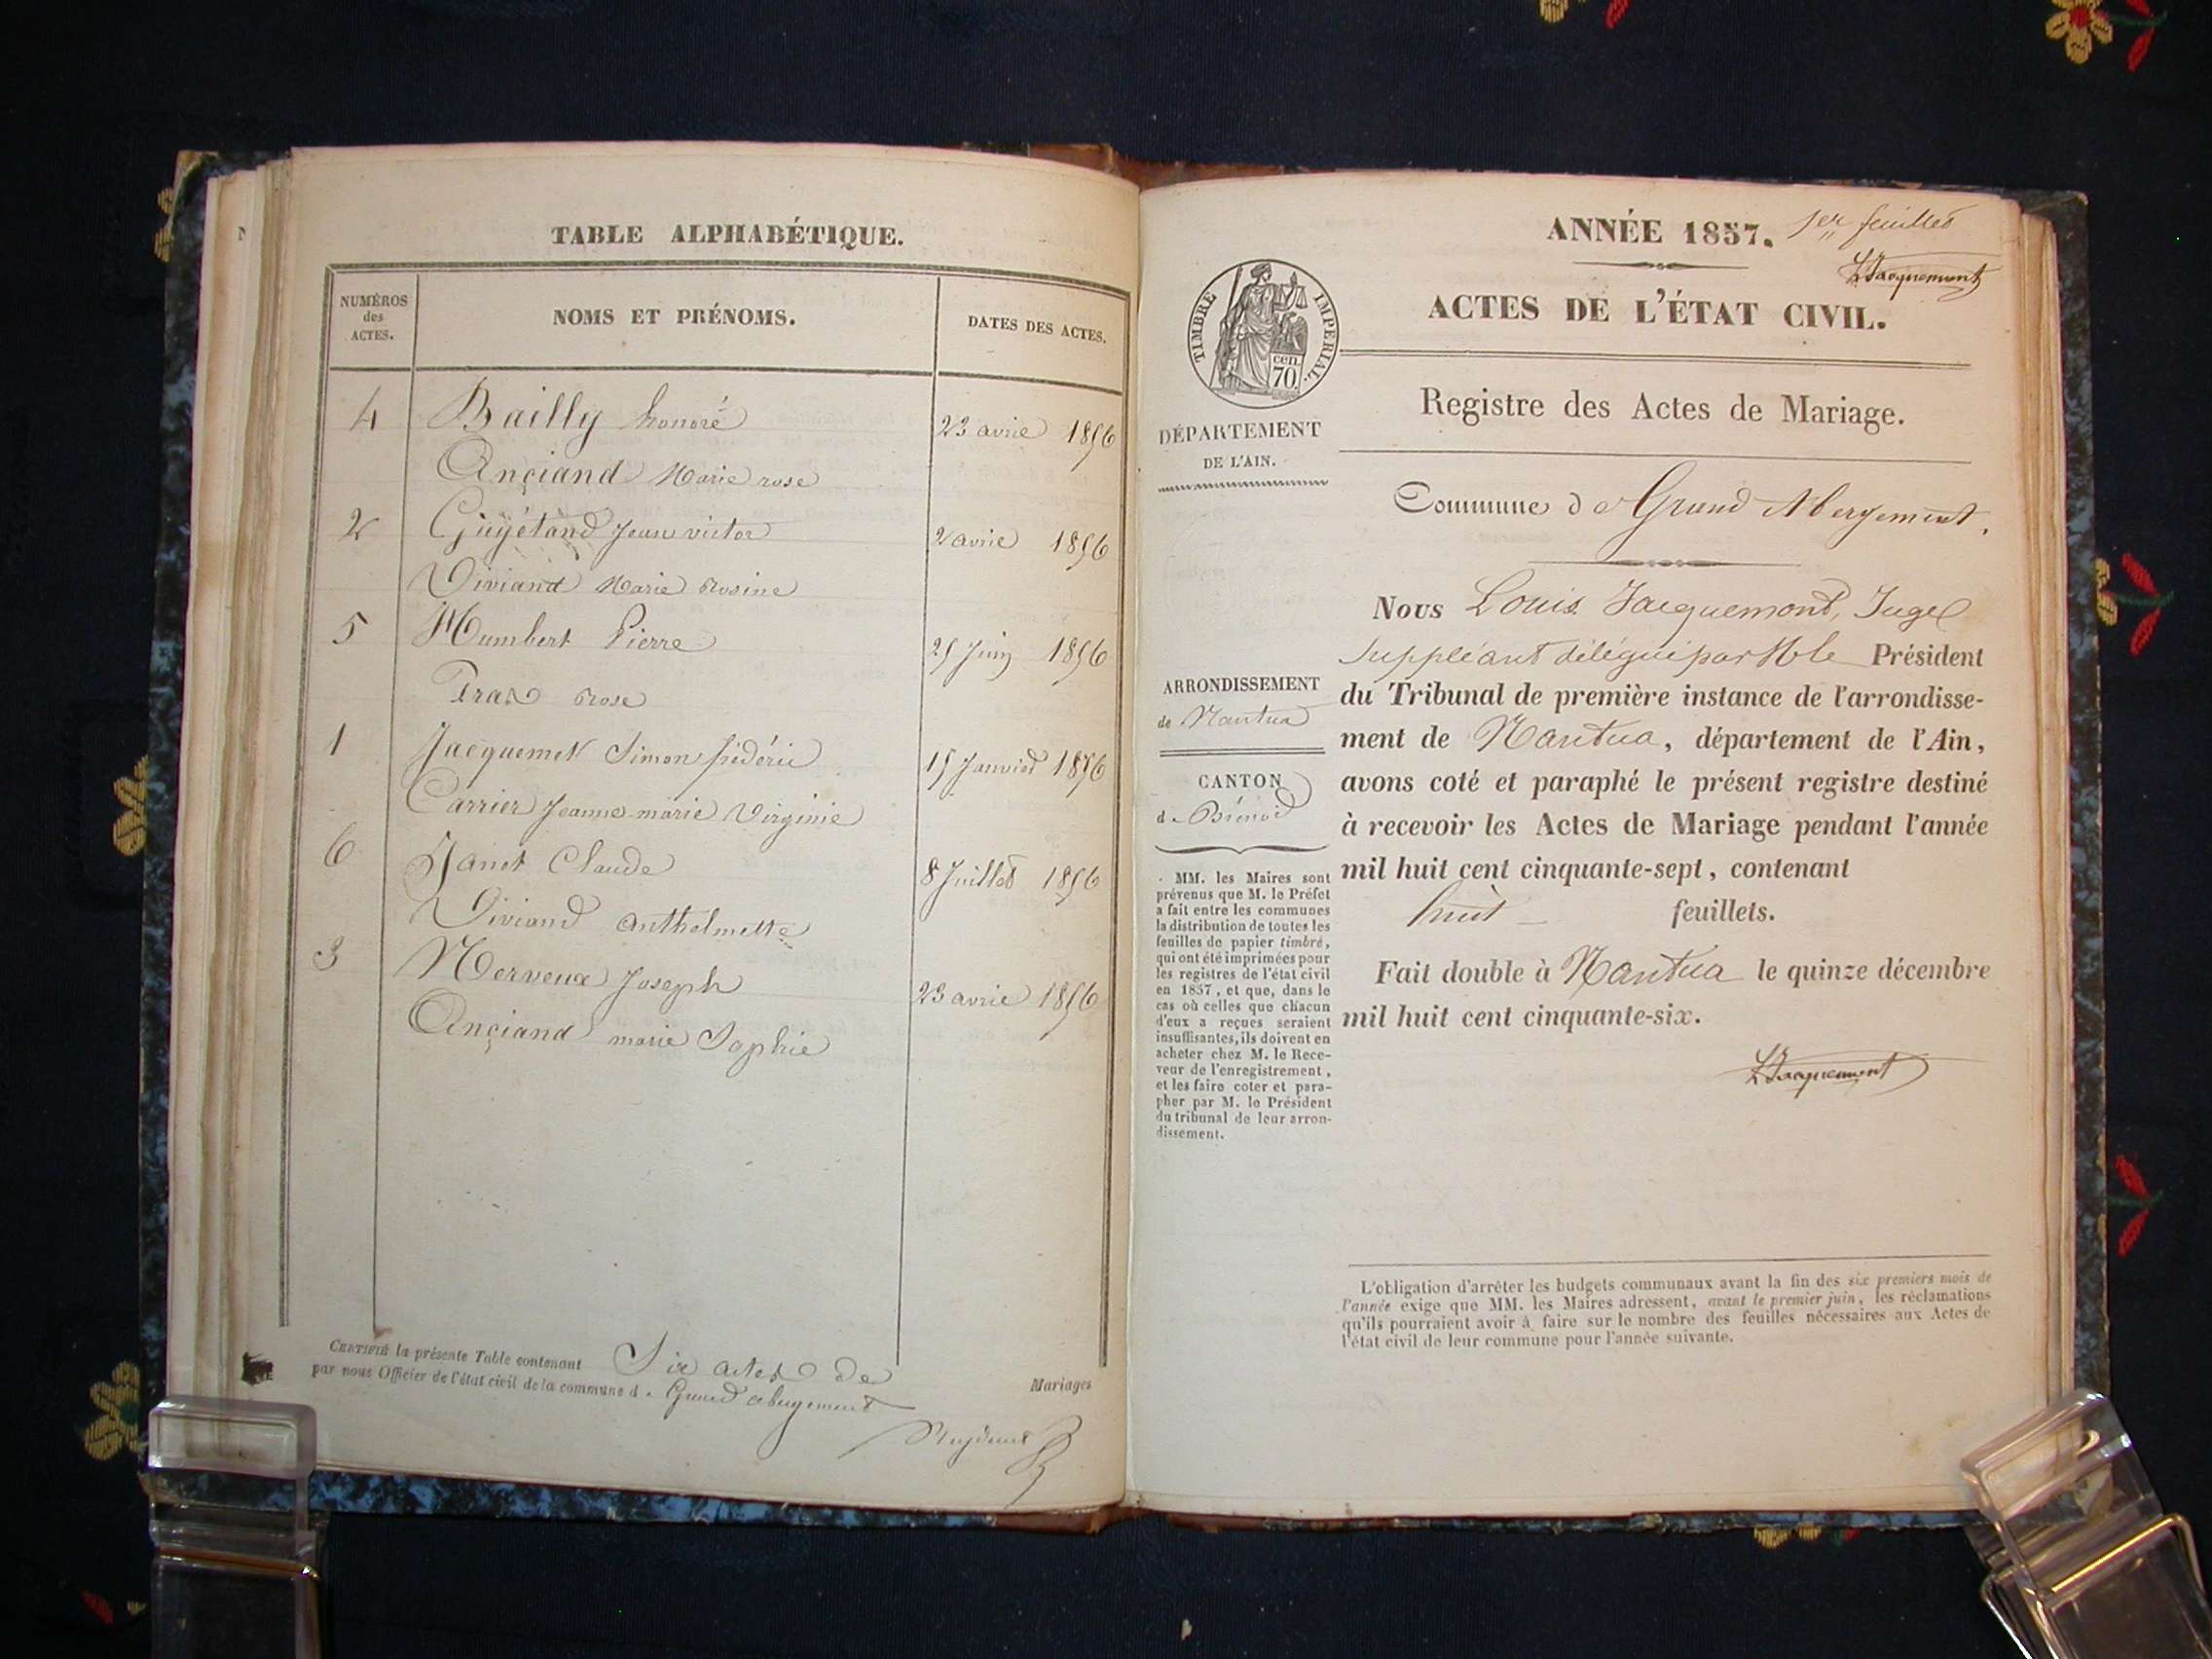 TABLE ALPHABÉTIQUE.
NUMÉROS
des
ACTES.
NOMS ET PRÉNOMS.
DATES DES ACTES.
4 Bailly honoré 23 avril 1856
Ançiand Marie rose
2 Guyétand Jean victor 2 avril 1856
Viviand Marie Rosine
5 Humbert Pierre 25 Juin 1856
Prax Rose
1 Jacquemet Simon frédéric 15 Janvier 1856
Carrier Jeanne-marie Virginie
6 Janet Claude 8 Juillet 1856
Viviand Anthelmette
3 Nerveux Joseph 23 avril 1856
Ançiand marie Sophie
CERTIFIÉ la présente Table contenant Six actes de Mariages
par nous Officier de l'état civil de la commune d e Grand abergement
ANNÉE 1857. 1er feuillet
LJacquemont
TIMBRE IMPÉRIAL.
cen.
70.
ACTES DE L'ÉTAT CIVIL.
Registre des Actes de Mariage.
DÉPARTEMENT
DE L'AIN.
Commune d e Grand Abergement.
Nous Louis Jacquemont, Juge
Suppléant délégué par Mr le Président
du Tribunal de première instance de l'arrondisse-
ment de Nantua, département de l'Ain,
avons coté et paraphé le présent registre destiné
à recevoir les Actes de Mariage pendant l'année
mil huit cent cinquante-sept, contenant
huit feuillets.
Fait double à Nantua le quinze décembre
mil huit cent cinquante-six.
LJacquemont
ARRONDISSEMENT
de Nantua
CANTON
d e Brénod
MM. les Maires sont
prévenus que M. le Préfet
a fait entre les communes
la distribution de toutes les
feuilles de papier timbré,
qui ont été imprimées pour
les registres de l'état civil
en 1857, et que, dans le
cas où celles que chacun
d'eux a reçues seraient
insuffisantes, ils doivent en
acheter chez M. le Rece-
veur de l'enregistrement,
et les faire coter et para-
pher par M. le Président
du tribunal de leur arron-
dissement.
L'obligation d'arrêter les budgets communaux avant la fin des six premiers mois de
l'année exige que MM. les Maires adressent, avant le premier juin, les réclamations
qu'ils pourraient avoir à faire sur le nombre des feuilles nécessaires aux Actes de
l'état civil de leur commune pour l'année suivante.